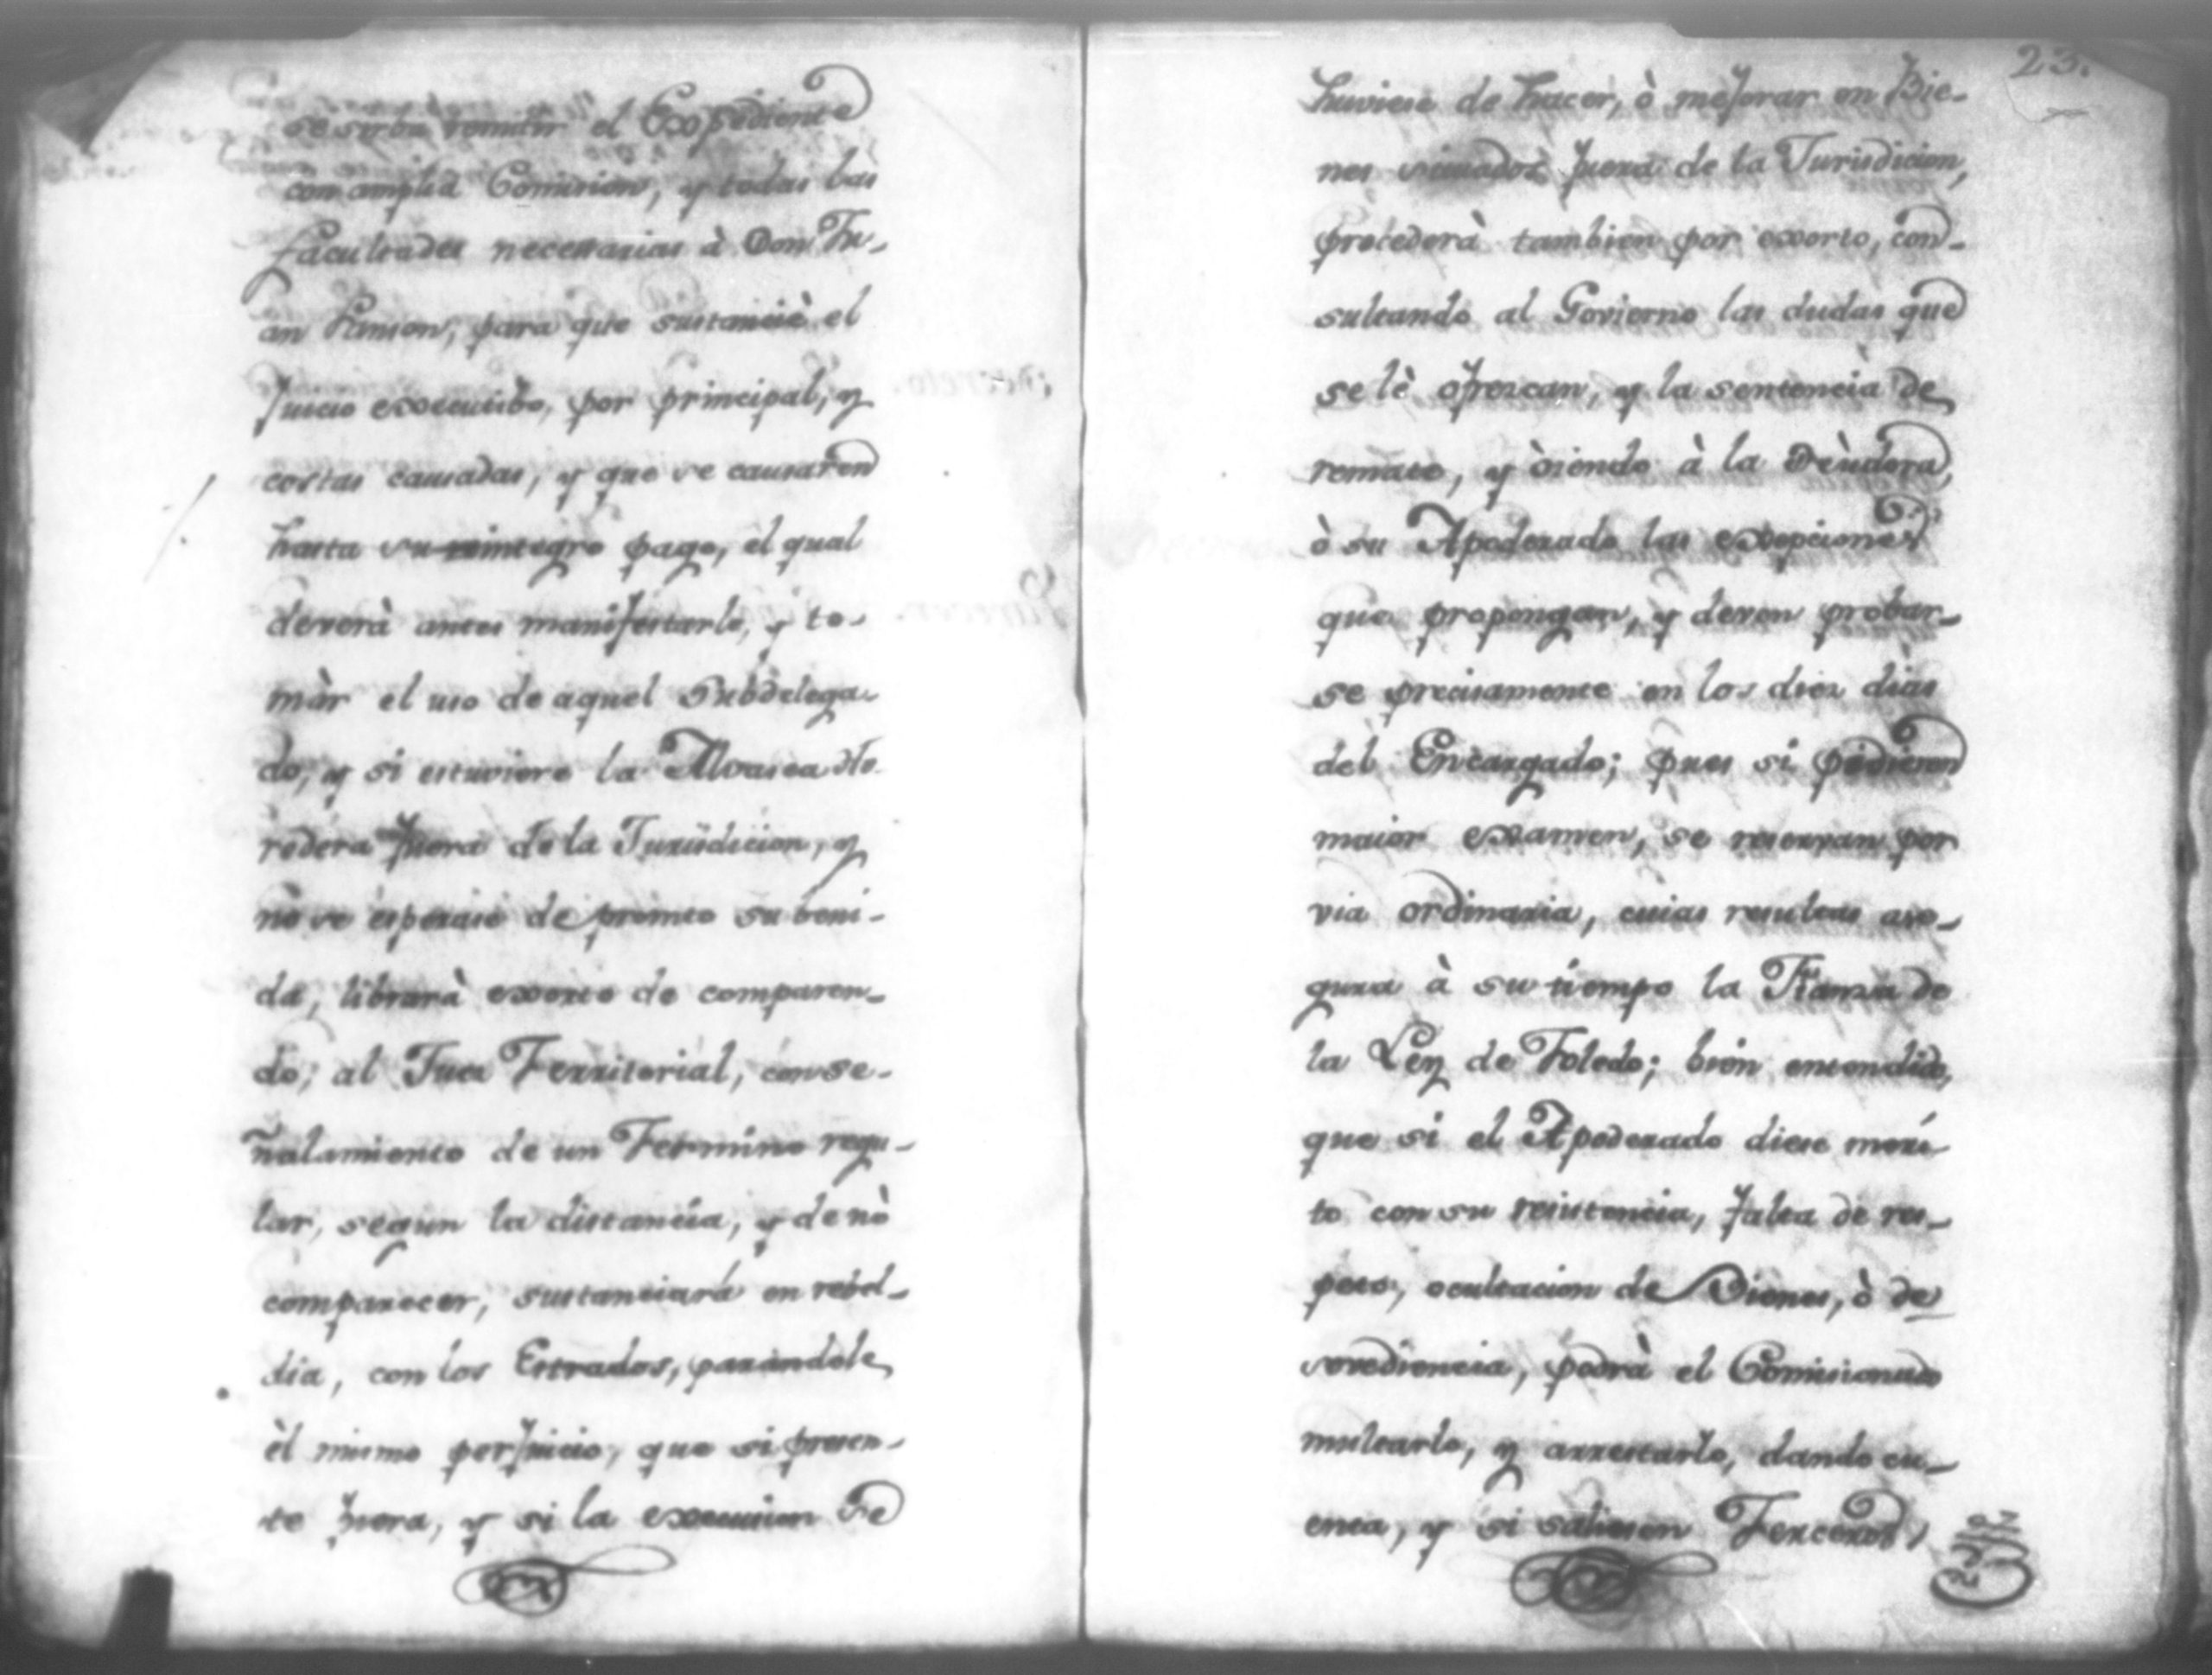 se servira remitir el Expediente
con amplia Comision, y todas las
facultades necesarias à Don Ju-
an Ramon, para que sustancie el
Juicio executibo, por principal, y
costas causadas, y que se causaren
hasta su reintegro pago, el qual
deverà antes manifestarlo, y to-
màr el uso de aquel Subdelega-
do, y si estuviere la Alvasea He-
redera fuera de la Jurisdicion, y
nò se esperase de promto su beni-
da, librarà exorto de comparen-
do, al Juez Territorial, con se-
ñalamiento de un Termino regu-
lar, segun la distancia, y de nò
comparecer, sustanciarà en rebel-
dia, con los Estrados, parandole
èl mismo perjuicio, que si presen-
te fuera, y si la execucion se
23.
huviese de hacer, ò mejorar en Bie-
nes situados fuera de la Jurisdicion,
procederà tambien por exorto, con-
sultando al Govierno las dudas que
se lè ofrezcan, y la sentencia de
remate, y òiendo à la Deudora,
ò su Apoderado las exepciones
que propongan, y deven probar-
se precisamente en los diez dias
del Encargado; pues si pidieren
maior examen, se reservan por
via ordinaria, cuias resultas ase-
gura à su tiempo la Fianza de
la Ley de Toledo; bien entendido,
que si el Apoderado diese meri-
to con su resistencia, falta de res-
peto, ocultacion de Bienes, ò de
sovediencia, podrà el Comisionado
multarlo, y arrestarlo, dando cu-
enta, y si saliesen Terceros,